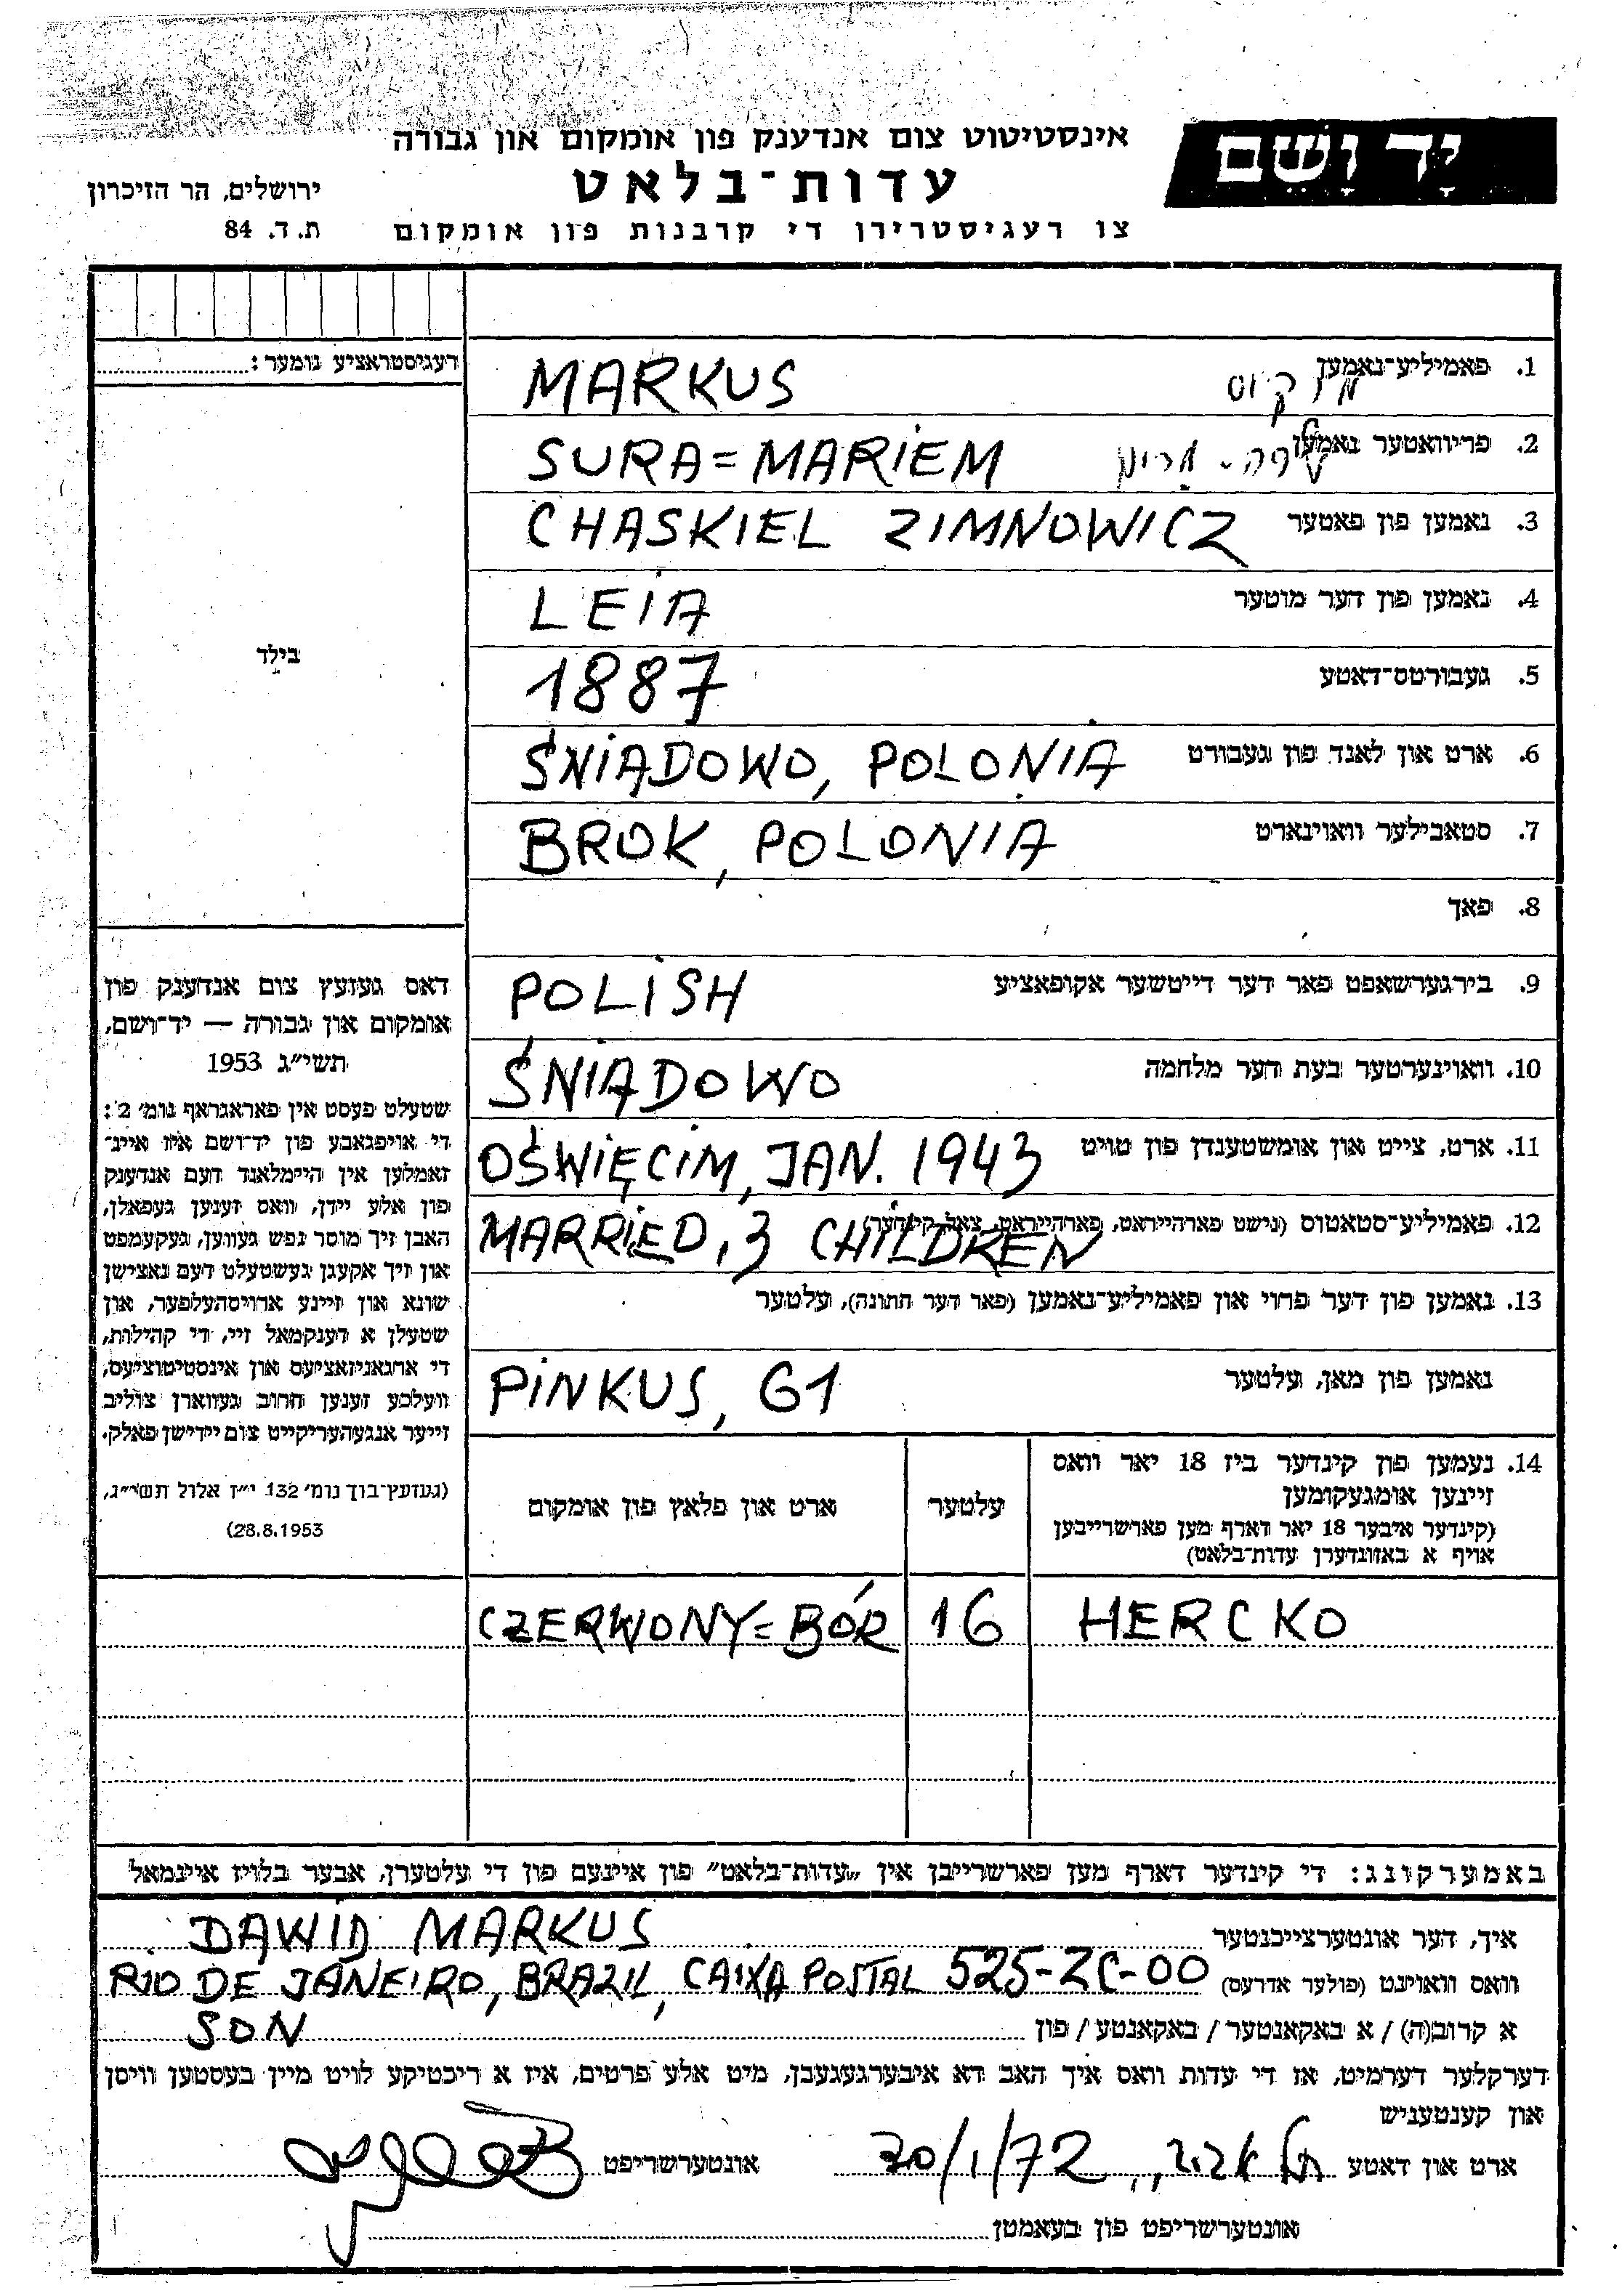 יָד וָשֵׁם
אינסטיטוט צום אנדענק פון אומקום און גבורה
עדות־בלאט
צו רעגיסטרירן די קרבנות פון אומקום
ירושלים, הר הזיכרון
ת. ד. 84
רעגיסטראציע נומער:
בילד
דאס געזעץ צום אנדענק פון
אומקום און גבורה — יד־ושם,
תשי״ג 1953
שטעלט פעסט אין פאראגראף נומ׳ 2:
די אויפגאבע פון יד־ושם איז איינ־
זאמלען אין היימלאנד דעם אנדענק
פון אלע יידן, וואס זענען געפאלן,
האבן זיך מוסר נפש געווען, געקעמפט
און זיך אקעגן געשטעלט דעם נאצישן
שונא און זיינע ארויסהעלפער, און
שטעלן א דענקמאל זיי, די קהילות,
די ארגאניזאציעס און אינסטיטוציעס,
וועלכע זענען חרוב געווארן צוליב
זייער אנגעהעריקייט צום יידישן פאלק.
(געזעץ־בוך נומ׳ 132 י״ז אלול תשי״ג,
28.8.1953)
1. פאמיליע־נאמען מרקוס MARKUS
2. פריוואטער נאמען שרה - מרים SURA=MARIEM
3. נאמען פון פאטער CHASKIEL ZIMNOWICZ
4. נאמען פון דער מוטער LEIA
5. געבורטס־דאטע 1887
6. ארט און לאנד פון געבורט ŚNIADOWO, POLONIA
7. סטאבילער וואוינארט BROK, POLONIA
8. פאך
9. בירגערשאפט פאר דער דייטשער אקופאציע POLISH
10. וואוינערטער בעת דער מלחמה ŚNIADOWO
11. ארט, צייט און אומשטענדן פון טויט OŚWIĘCIM, JAN. 1943
12. פאמיליע־סטאטוס (נישט פארהייראט, פארהייראט, צאל קינדער) MARRIED, 3 CHILDREN
13. נאמען פון דער פרוי און פאמיליע־נאמען (פאר דער חתונה), עלטער
נאמען פון מאן, עלטער PINKUS, 61
14. נעמען פון קינדער ביז 18 יאר וואס
זיינען אומגעקומען
(קינדער איבער 18 יאר דארף מען פארשרייבן
אויף א באזונדערן עדות־בלאט)
עלטער
ארט און פלאץ פון אומקום
HERCKO 16 CZERWONY=BÓR
באמערקונג: די קינדער דארף מען פארשרייבן אין „עדות־בלאט״ פון איינעם פון די עלטערן, אבער בלויז איינמאל
איך, דער אונטערצייכנטער DAWID MARKUS
וואס וואוינט (פולער אדרעס) RIO DE JANEIRO, BRAZIL, CAIXA POSTAL 525-ZC-00
א קרוב(ה) / א באקאנטער / באקאנטע / פון SON
דערקלער דערמיט, אז די עדות וואס איך האב דא איבערגעגעבן, מיט אלע פרטים, איז א ריכטיקע לויט מיין בעסטען וויסן
און קענטעניש
ארט און דאטע תל אביב,, 30/1/72 אונטערשריפט
אונטערשריפט פון בעאמטן